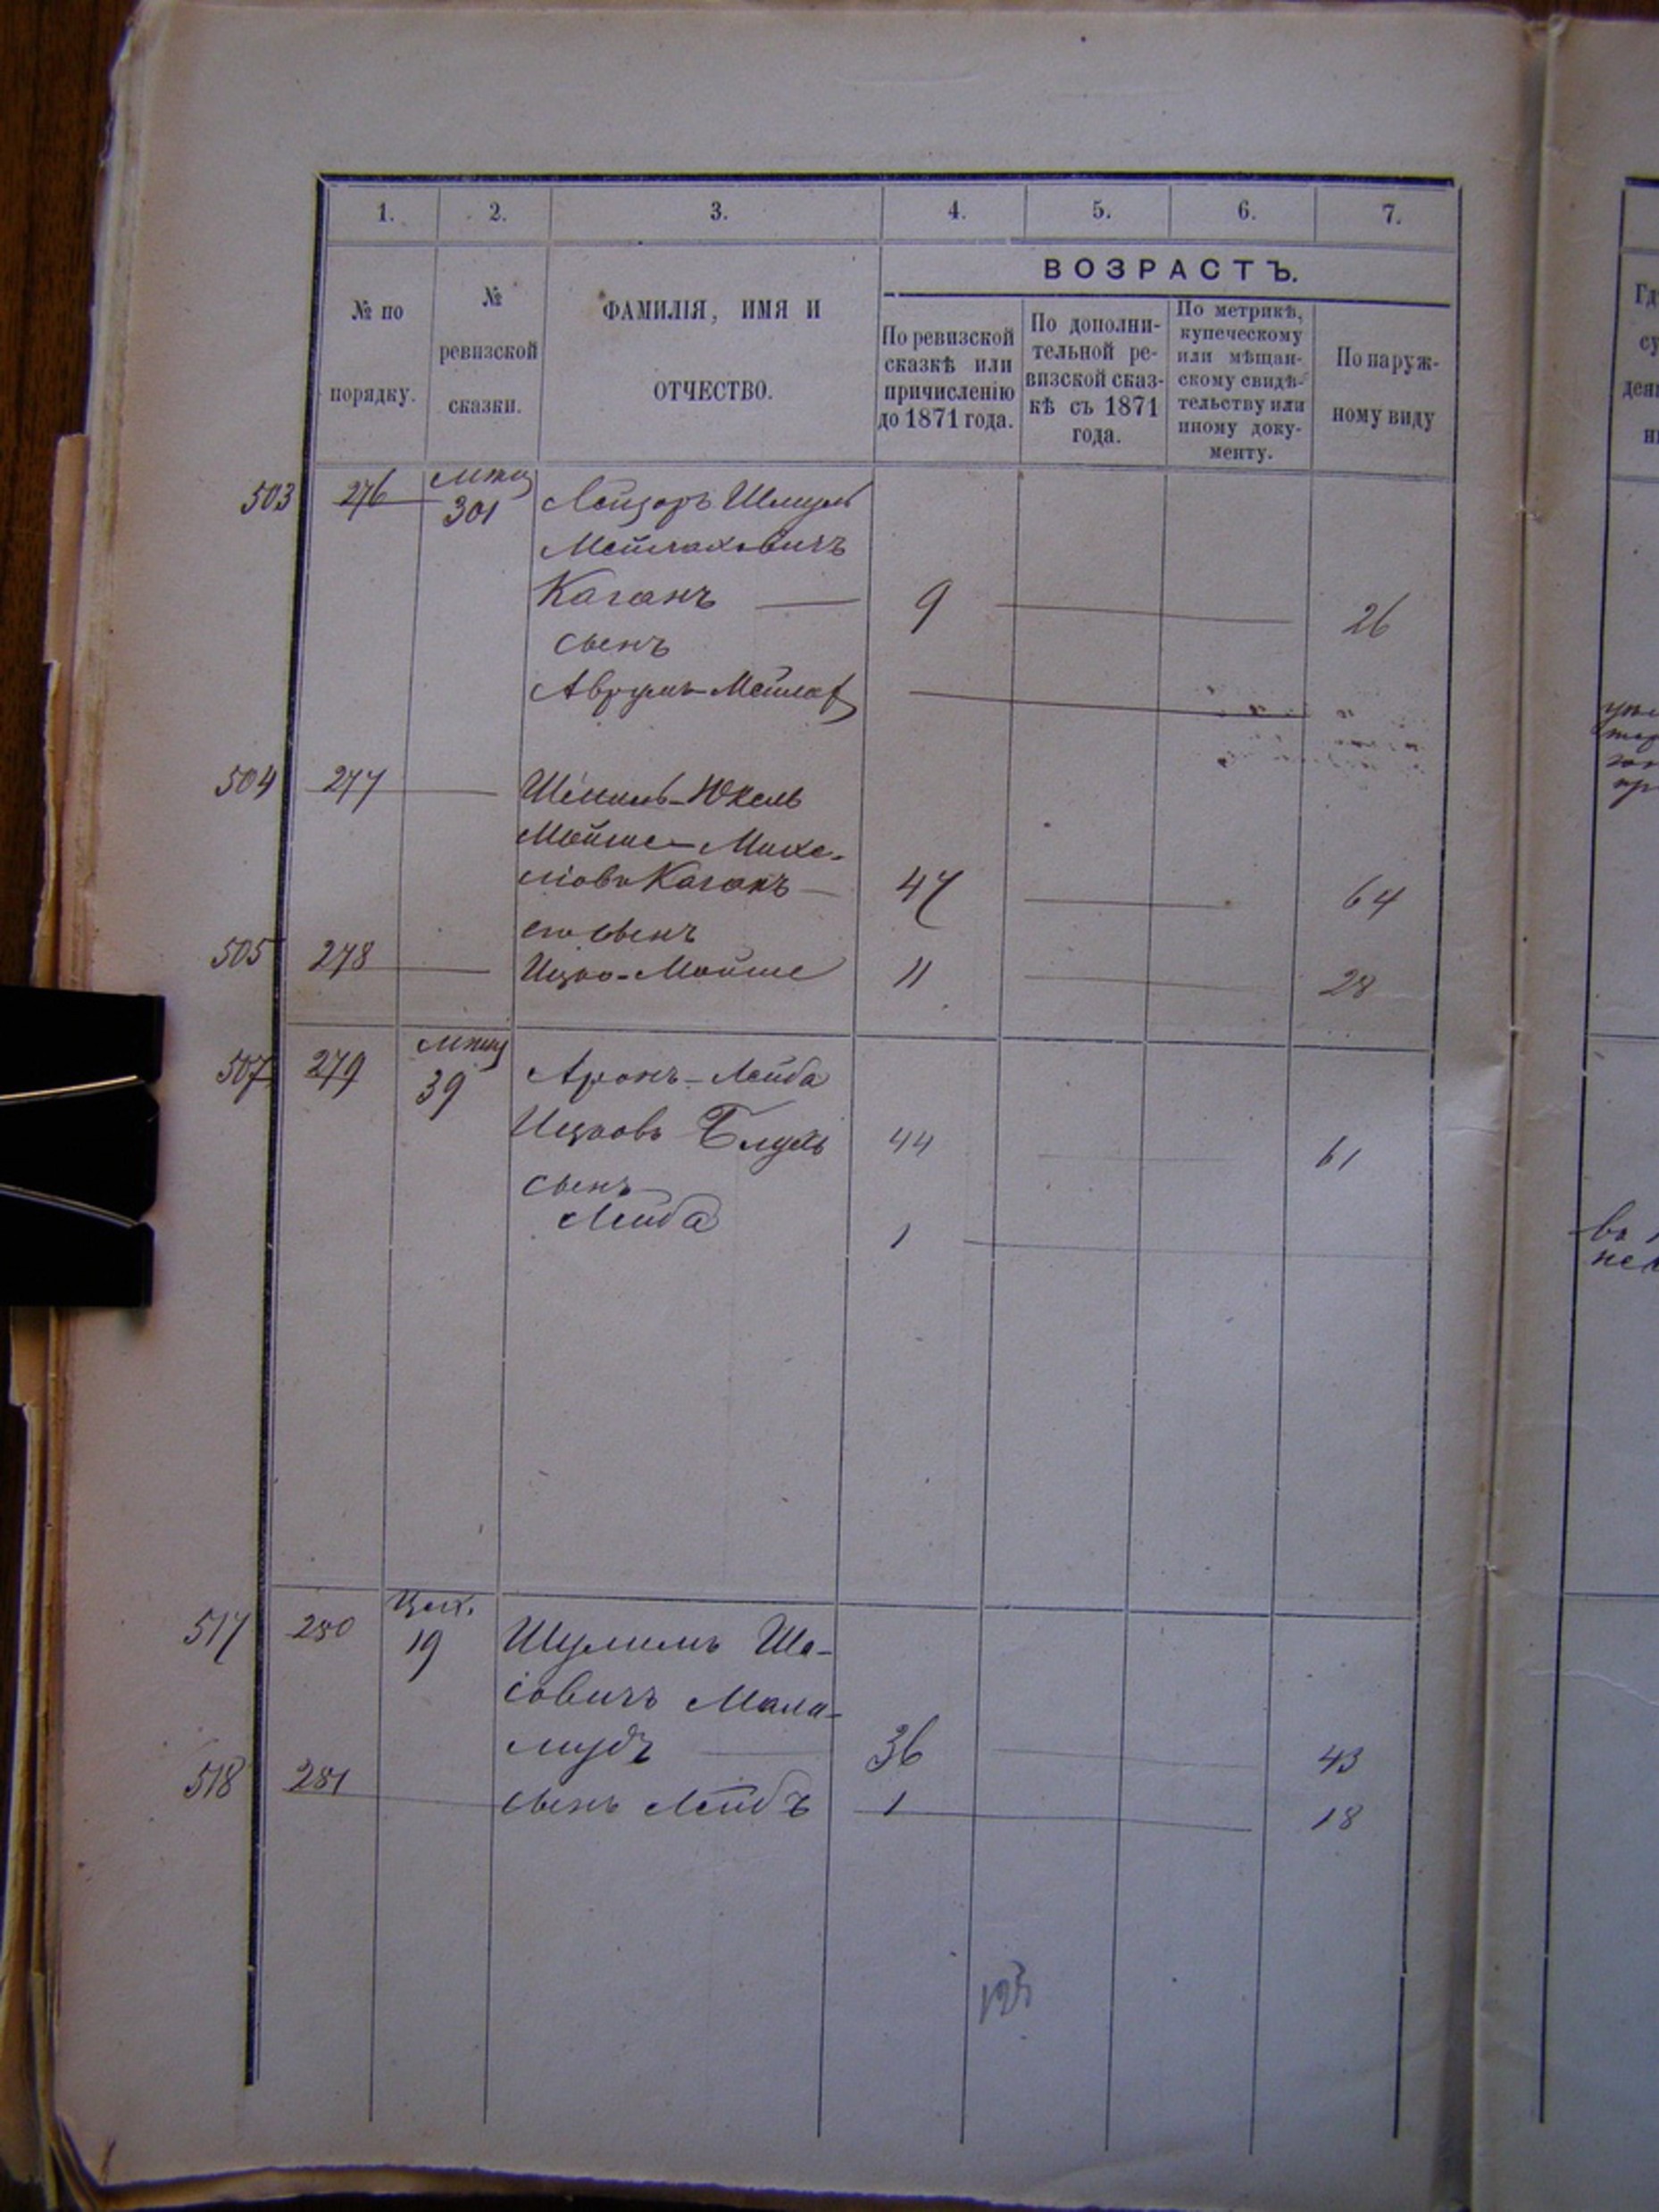 1. 2. 3. 4. 5. 6. 7.
№ по порядку.
№ ревизской сказки.
ФАМИЛІЯ, ИМЯ И
ОТЧЕСТВО.
ВОЗРАСТЪ.
По ревизской
сказкѣ или
причисленію
до 1871 года.
По дополни-
тельной ре-
визской сказ-
кѣ съ 1871
года.
По метрикѣ,
купеческому
или мѣщан-
скому свидѣ-
тельству или
иному доку-
менту.
По наруж-
ному виду
503 276 301 Лейзоръ Шмуль
Мейлаховичъ
Каганъ — 9 26
сынъ
Аврумъ-Мейлах
504 277 Юкель
Мойше-Михе-
леовъ Каганъ 47 64
его сынъ
505 278 Ицко-Мойше 11 28
507 279 39 Аронъ-Лейба
Ицковъ 44 61
сынъ
Лейба 1
517 280 Цех. 19 Шулимъ Ша-
іовичъ Мала-
мудъ 36 43
518 281 сынъ Лейбъ 1 18
во